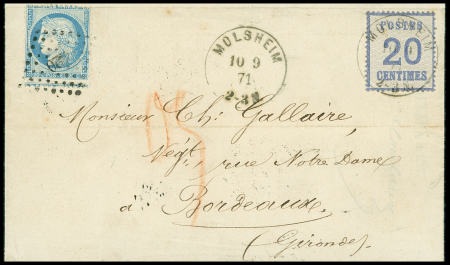 MOLSHEIM
10 9
71
POSTES
20
CENTIMES
Monsieur Ch: Gallaire,
Négt, rue Notre Dame
à Bordeaux
(Gironde)